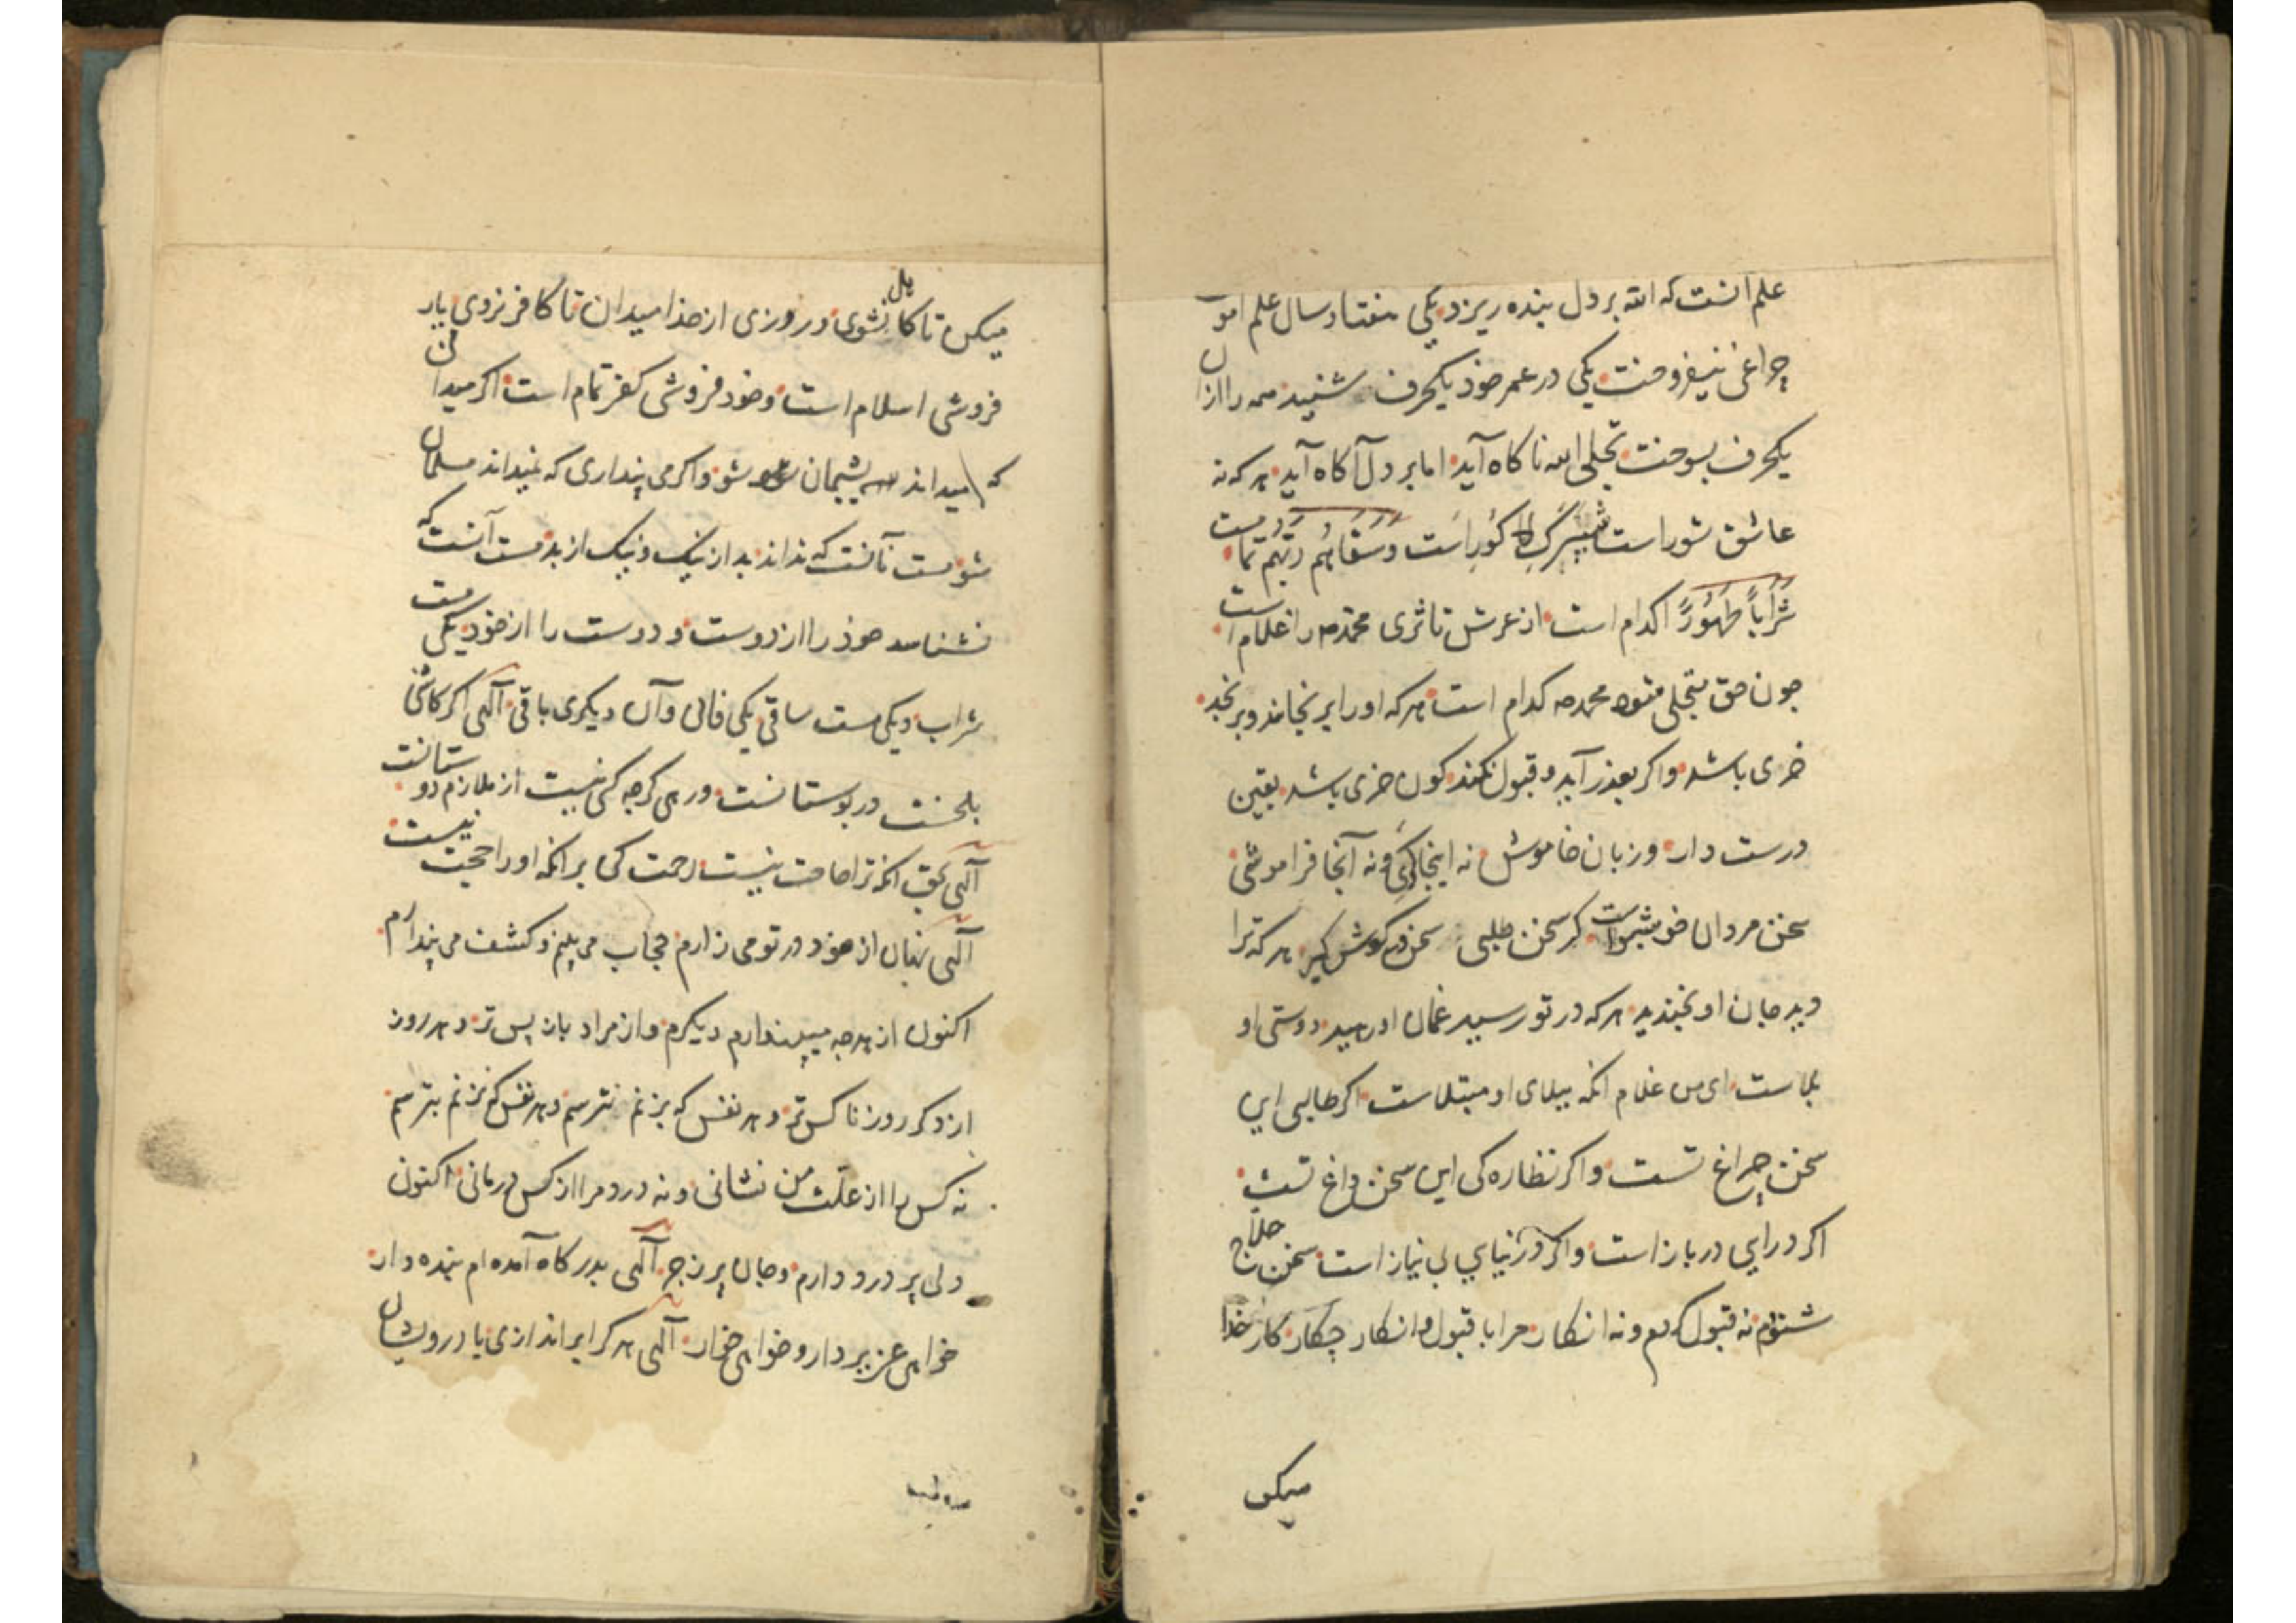 علم آنست که الله بر دل بنده ریزد یکی هفتاد سال علم اموخت
چراغی نیفروخت یکی در عمر خوذ یکحرف شنیذ همه را ازان
یکحرف بسوخت تجلی الله ناکاه آید اما بر دل آکاه آید هر که نه
عاشق ستور است شپرک را کور است وَسَقَاهُم رَبُّهُم تمامست
شَرَاباً طَهُوراً کدام است از عرش تا ثری محمد را غلام است
چون حق متجلی شود محمد کدام است هر که او را برنجانند و برنجد
خری باشد و اکر بعذر آید و قبول نکند کون خری باشد یقین
درست دار و زبان خاموش نه اینجا کری و نه آنجا فراموشی
سخن مردان خویشتن است کر سخن طلبی سخن در کوش کیر هر که ترا
دید جان او بخندید هر که در تو رسید غمان او رسید دوستی او
بلاست ای من غلام انکه ببلای او مبتلاست اکر طالبی این
سخن چراغ تست و اکر نظاره کی این سخن داغ تست
اکر درایی در باز است و اکر در نیایی بی نیاز است سخن حلاج
شنوم نه قبول کنم و نه انکار مرا با قبول و انکار چکار کار خذا
میکن
میکن تا کاهل نشوی و روزی از خذا میدان تا کافر نروی یار
فروشی اسلام است و خود فروشی کفر تمام است اکر میدانی
که میداند پشیمان شو و اکر می پنداری که نمیداند مسلمان
شو مست نآنست که نداند بد از نیک و نیک از بد مست آنست که
نشناسد خوذ را از دوست و دوست را از خوذ یکی مست
شراب و یکی مست ساقی یکی فانی و آن دیکری باقی آلهی اکر کاشی
بلخست در بوستانست ور می کرچه کسی نیست از ملازم دوستانست
آلهی بحق انکه ترا حاجت نیست رحمت کن بر انکه او را حجت نیست
آلهی نهان از خود در تو می زارم حجاب می بینم و کشف می پندارم
اکنون از هرچه میپندارم دیکرم و از مراد باز پس تر و هر روز
از دکر روز ناکس تر و هر نفس که بزنم بترسم و هر نفس که نزنم بترسم
نه کس را از علّت من نشانی و نه درد مرا از کس درمانی اکنون
دلی پر درد دارم و جان پر زجر آلهی بدرکاه آمده ام بنده وار
خواهی عزیز دار و خواهی خوار آلهی هر کرا براندازی با درویشان